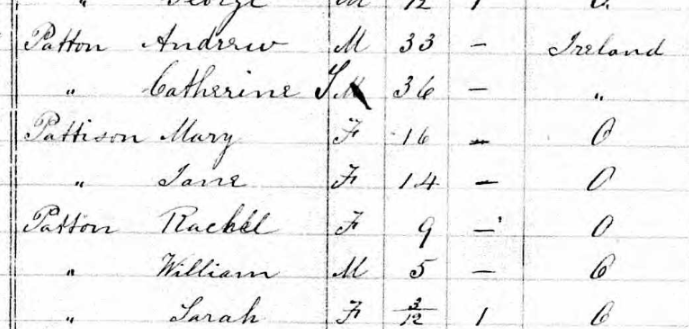 " George M 12 1 O.
Patton Andrew M 33 — Ireland
" Catherine F 36 — "
Pattison Mary F 16 — O
" Jane F 14 — O
Patton Rachel F 9 — O
" William M 5 — O
" Sarah F 3/12 1 O